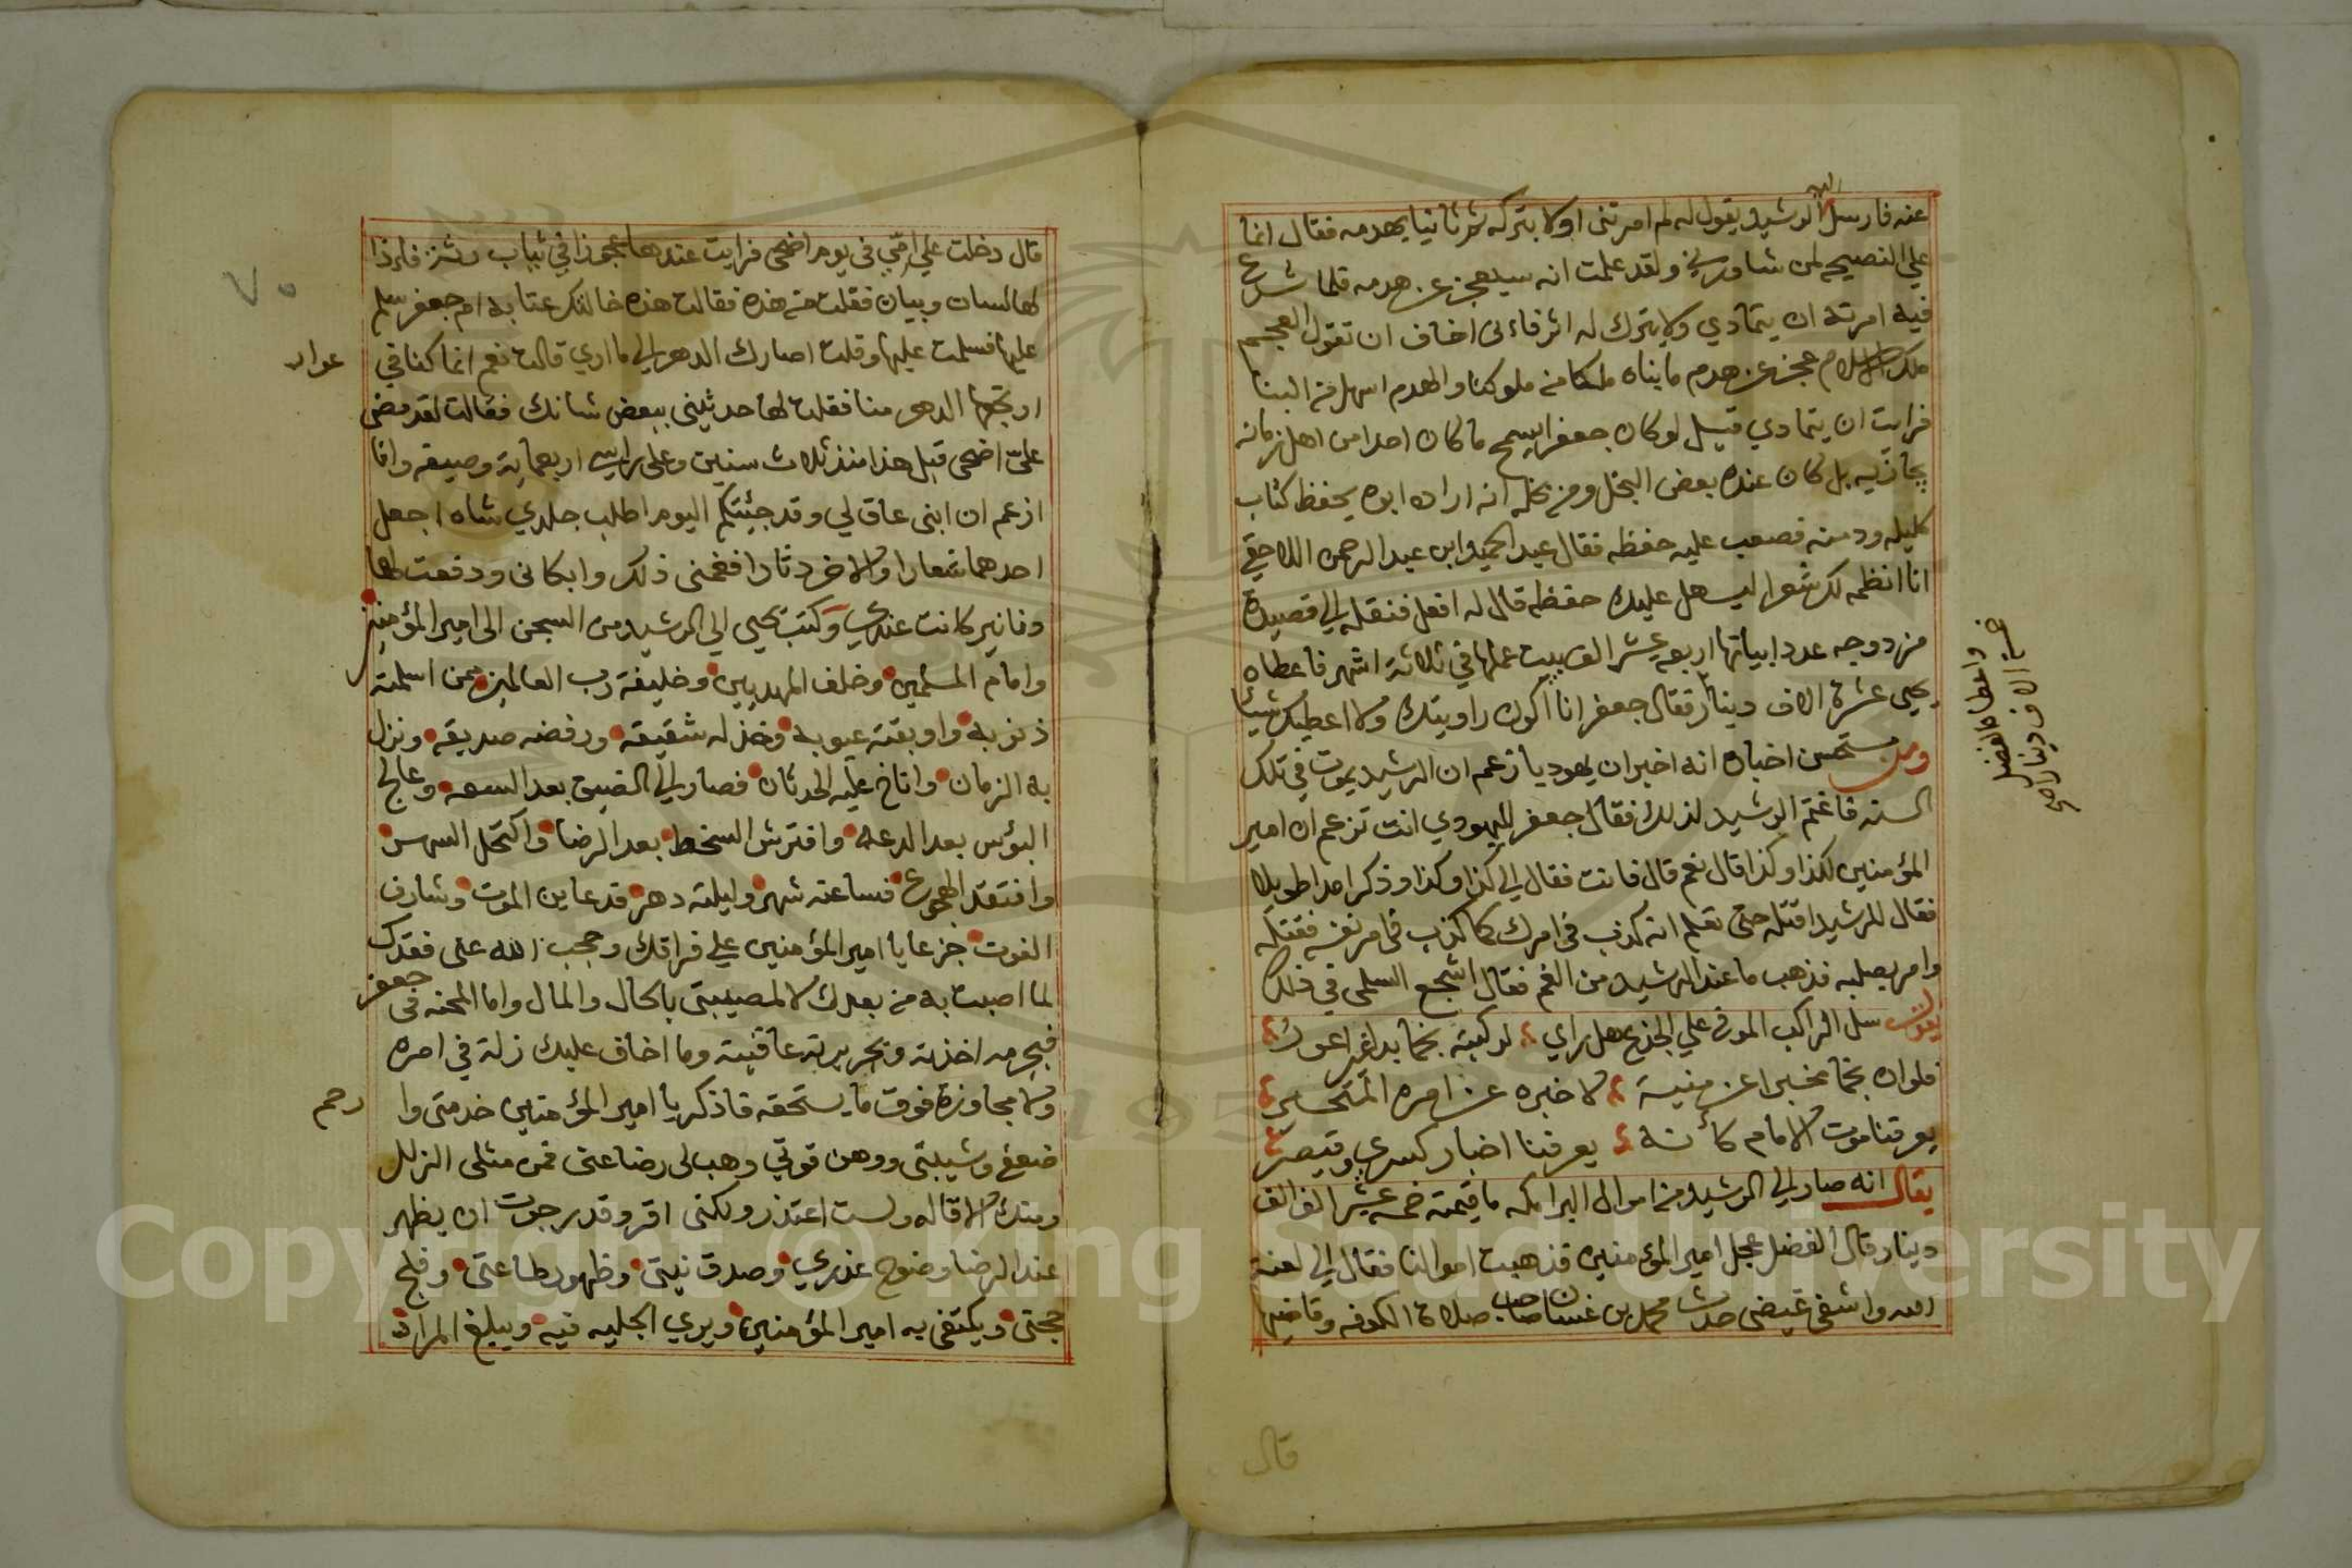 اليه
عنه فارسل الرشيد يقول له لم امرتنى اولا بتركه ثم ثانيا بهدمه فقال انما
علي النصيحه لمن شاورني ولقد علمت انه سيعجز عن هدمه فلما شرع
فيه امرته ان يتمادي ولا يترك له اثر فاني اخاف ان تقول العجم
ملك الاسلام عجز عن هدم ما بناه ملكا من ملوكنا والهدم اسهل من البنا
فرايت ان يتمادي قيل لو كان جعفر ايسمح ما كان احدا من اهل زمانه
يجازيه بل كان عنده بعض البخل ومن بخله انه اراد ابوه يحفظ كتاب
كليله ودمنه فصعب عليه حفظه فقال عبد الحميد ابن عبد الرحمن اللاحقي
انا انظمه لك شعرا ليسهل عليك حفظه قال له افعل فنقله الي قصيدة
مزدوجه عدد ابياتها اربعه عشر الف بيت عملها في ثلاثة اشهر فاعطاه
يحيى عشرة الاف دينار فقال جعفر انا اكون راويتك ولا اعطيك شيئا
واعطاه الفضل
خمسة الاف دينار صح
ومن مستحسن اخباره انه اخبر ان يهوديا زعم ان الرشيد يموت في تلك
السنه فاغتم الرشيد لذلك فقال جعفر لليهودي انت تزعم ان امير
المؤمنين لكذا وكذا قال نعم قال فانت فقال الي كذا وكذا وذكر امدا طويلا
فقال للرشيد اقتله حتى تعلم انه كذب في امرك كما كذب في امر نفسه فقتله
وامر بصلبه فذهب ما عند الرشيد من الغم فقال اشجع السلمى في ذلك
يقول سل الراكب الموفي علي الجذع هل راي لراكبه نجما بدا غير اعور
فلو ان نجما مخبرا عن منية لاخبره عن امره المتحير
يعرفنا موت الامام كأنه يعرفنا اخبار كسري وقيصر
يقال انه صار الي الرشيد من اموال البرامكه ما قيمته خمسه عشر الف الف
دينار قال الفضل عجل امير المؤمنين فذهبت اموالنا فقال الي لعنة
الله واشفى غيضى حدث محمد بن غسان صاحب صلاة الكوفه وقاضيها
قال
٧٠
قال دخلت علي امي في يوم اضحى فرايت عندها عجوزا في ثياب رثة فاذا
لها لسان وبيان فقلت من هذه فقالت هذه خالتك عتابه ام جعفر سلم
عليها فسلمت عليها وقلت اصارك الدهر الي ما اري قالت نعم انما كنا في
عوار
ارتجعها الدهر منا فقلت لها حدثيني ببعض شانك فقالت لقد مضى
عليّ اضحى قبل هذا منذ ثلاث سنين وعلى راسي اربعماية وصيفه وانا
ازعم ان ابنى عاق لي وقد جئتكم اليوم اطلب جلدي شاه اجعل
احدهما شعارا والاخر دثارا فغمنى ذلك وابكانى ودفعت لها
دنانير كانت عندي وكتب يحيي الي الرشيد من السجن الى امير المؤمنين
وامام المسلمين وخلف المهديين وخليفة رب العالمين ممن اسلمته
ذنوبه واوبقته عيوبه وخذله شقيقه ورفضه صديقه ونزل
به الزمان واناخ عليه الحدثان فصار الي الضيق بعد السعه وعالج
البؤس بعد الدعه وافترش السخط بعد الرضا واكتحل السهر
وافتقد الهجوع فساعته شهر وليلته دهر قد عاين الموت وشارف
الفوت جزعا يا امير المؤمنين علي فراقك وحجب الله عنى فقدك
لما اصبت به من بعدك لا لمصيبتى بالحال والمال واما المحنه فى جعفر
فبجرمه اخذته وبجريرته عاقبته وما اخاف عليك زلة في امره
ولا مجاوزة فوق ما يستحقه فاذكر يا امير المؤمنين خدمتى وا
رحم
ضعفي وشيبتى ووهن قوتي وهب لى رضا عنى فمن مثلى الزلل
ومنك الاقاله ولست اعتذر ولكنى اقر وقد رجوت ان يظهر
عند الرضا وضوح عذري وصدق نيتى وظهور طاعتى وفلج
حجتى ويكتفى به امير المؤمنين ويري الجليه فيه ويبلغ المراد
Copyright © King Saud University
1957